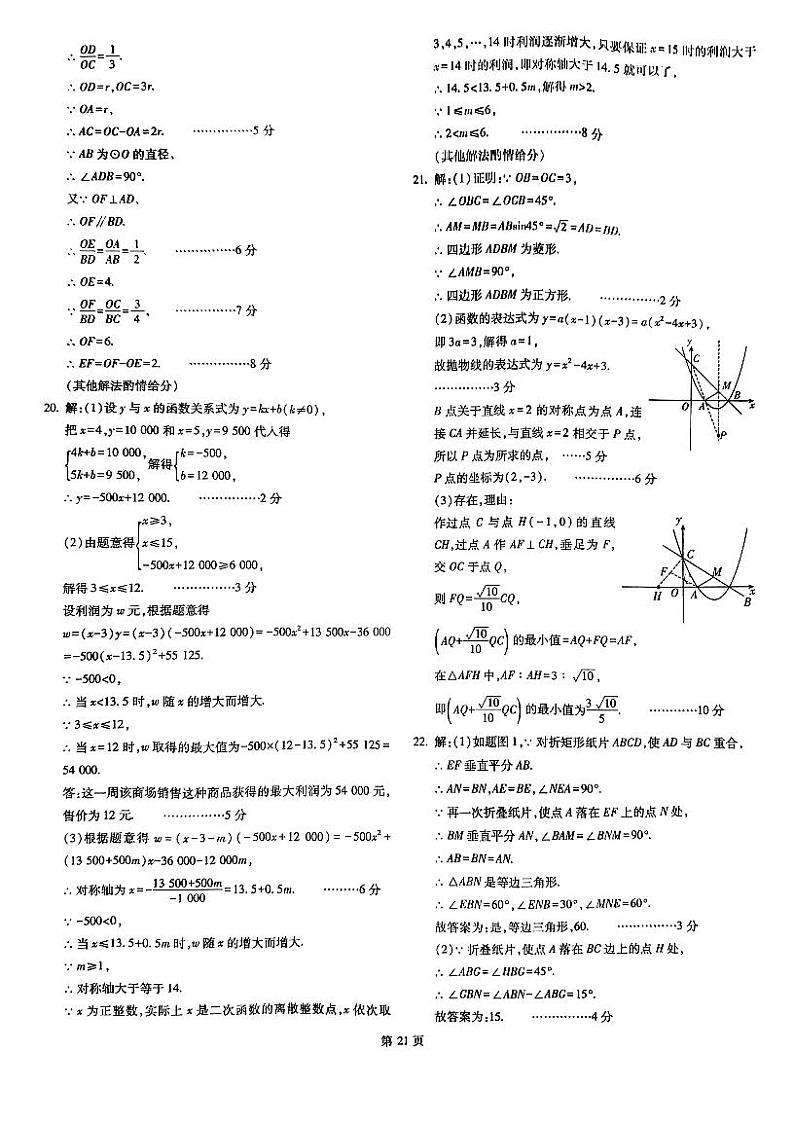 ∴ OD/OC=1/3.
∴ OD=r,OC=3r.
∵ OA=r,
∴ AC=OC-OA=2r. ……………5 分
∵ AB 为⊙O 的直径、
∴ ∠ADB=90°.
又∵ OF⊥AD、
∴ OF∥BD.
∴ OE/BD=OA/AB=1/2. ……………6 分
∴ OE=4.
∵ OF/BD=OC/BC=3/4, ……………7 分
∴ OF=6.
∴ EF=OF-OE=2. ……………8 分
(其他解法酌情给分)
20. 解:(1)设 y 与 x 的函数关系式为 y=kx+b(k≠0),
把 x=4,y=10 000 和 x=5,y=9 500 代入得
{4k+b=10 000, 5k+b=9 500, 解得{k=-500, b=12 000,
∴ y=-500x+12 000. ……………2 分
(2)由题意得{x≥3, x≤15, -500x+12 000≥6 000,
解得 3≤x≤12. ……………3 分
设利润为 w 元,根据题意得
w=(x-3)y=(x-3)(-500x+12 000)=-500x²+13 500x-36 000
=-500(x-13.5)²+55 125.
∵ -500<0,
∴ 当 x<13.5 时,w 随 x 的增大而增大.
∵ 3≤x≤12,
∴ 当 x=12 时,w 取得的最大值为-500×(12-13.5)²+55 125=
54 000.
答:这一周该商场销售这种商品获得的最大利润为 54 000 元,
售价为 12 元. ……………5 分
(3)根据题意得 w=(x-3-m)(-500x+12 000)=-500x²+
(13 500+500m)x-36 000-12 000m,
∴ 对称轴为 x=-(13 500+500m)/(-1 000)=13.5+0.5m. ………6 分
∵ -500<0,
∴ 当 x≤13.5+0.5m 时,w 随 x 的增大而增大.
∵ m≥1,
∴ 对称轴大于等于 14.
∵ x 为正整数,实际上 x 是二次函数的离散整数点,x 依次取
3,4,5,…,14 时利润逐渐增大,只要保证 x=15 时的利润大于
x=14 时的利润,即对称轴大于 14.5 就可以了,
∴ 14.5<13.5+0.5m,解得 m>2.
∵ 1≤m≤6,
∴ 2<m≤6. ……………8 分
(其他解法酌情给分)
21. 解:(1)证明:∵ OB=OC=3,
∴ ∠OBC=∠OCB=45°.
∴ AM=MB=ABsin45°=√2=AD=BD.
∴ 四边形 ADBM 为菱形.
∵ ∠AMB=90°,
∴ 四边形 ADBM 为正方形. ……………2 分
(2)函数的表达式为 y=a(x-1)(x-3)=a(x²-4x+3),
即 3a=3,解得 a=1,
故抛物线的表达式为 y=x²-4x+3.
……………3 分
y
C
M
O
A
B
x
P
B 点关于直线 x=2 的对称点为点 A,连
接 CA 并延长,与直线 x=2 相交于 P 点,
所以 P 点为所求的点, ……5 分
P 点的坐标为(2,-3). ……………6 分
(3)存在,理由:
作过点 C 与点 H(-1,0)的直线
CH,过点 A 作 AF⊥CH,垂足为 F,
交 OC 于点 Q,
y
C
F
M
H
O
A
B
x
则 FQ=√10/10 CQ,
(AQ+√10/10 QC)的最小值=AQ+FQ=AF,
在△AFH 中,AF∶AH=3∶√10,
即(AQ+√10/10 QC)的最小值为3√10/5. …………10 分
22. 解:(1)如题图 1,∵ 对折矩形纸片 ABCD,使 AD 与 BC 重合,
∴ EF 垂直平分 AB.
∴ AN=BN,AE=BE,∠NEA=90°.
∵ 再一次折叠纸片,使点 A 落在 EF 上的点 N 处,
∴ BM 垂直平分 AN,∠BAM=∠BNM=90°.
∴ AB=BN=AN.
∴ △ABN 是等边三角形.
∴ ∠EBN=60°,∠ENB=30°,∠MNE=60°.
故答案为:是,等边三角形,60. ……………3 分
(2)∵ 折叠纸片,使点 A 落在 BC 边上的点 H 处,
∴ ∠ABG=∠HBG=45°.
∴ ∠GBN=∠ABN-∠ABG=15°.
故答案为:15. ……………4 分
第 21 页